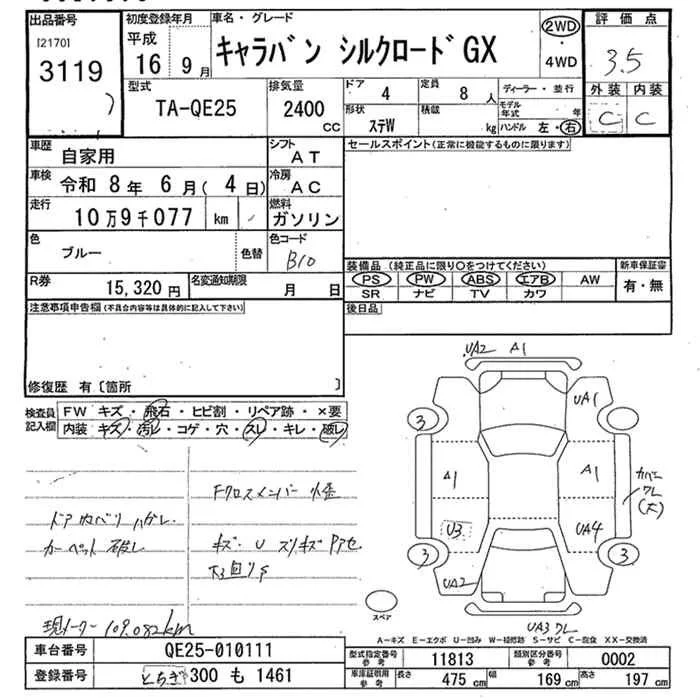 出品番号 初度登録年月 車名・グレード 2WD ・ 4WD 評価点
[2170] 3119 平成 16 9月 キャラバン シルクロードGX 3.5
型式 排気量 ドア 4 定員 8人 ディーラー・並行 外装 内装
TA-QE25 2400 CC 形状 ステW 積載 kg モデル年式 年 ハンドル 左・右 C C
車歴 自家用 シフト AT セールスポイント(正常に機能するものに限ります)
車検 令和 8年 6月(4日) 冷房 AC
走行 10万9千077 km 燃料 ガソリン
色 ブルー 色替 色コード B10
装備品(純正品に限り○をつけてください) 新車保証書
R券 15,320円 名変通知期限 月 日 PS PW ABS エアB AW 有・無
SR ナビ TV カワ
注意事項申告欄(不具合内容等は具体的に記入して下さい) 後日品
修復歴 有〔箇所 〕
検査員記入欄 FW キズ・飛石・ヒビ割・リペア跡・×要
内装 キズ・汚レ・コゲ・穴・スレ・キレ・破レ
UA2 A1
UA1
3
A1 A1 カバー ワレ (大)
U3 UA4
3 3
UA2
スペア
UA3 ワレ
Fクロスメンバー
ドア内ベリハガレ
カーペット破レ
キズ・U スリキズ
下回りS
現メーター109,082km
A-キズ E-エクボ U-凹み W-補修跡 S-サビ C-腐食 XX-交換済
車台番号 QE25-010111
登録番号 とちぎ 300 も 1461
型式指定番号 参考 11813 類別区分番号 参考 0002
車庫証明用 参考 長さ 475 cm 幅 169 cm 高さ 197 cm